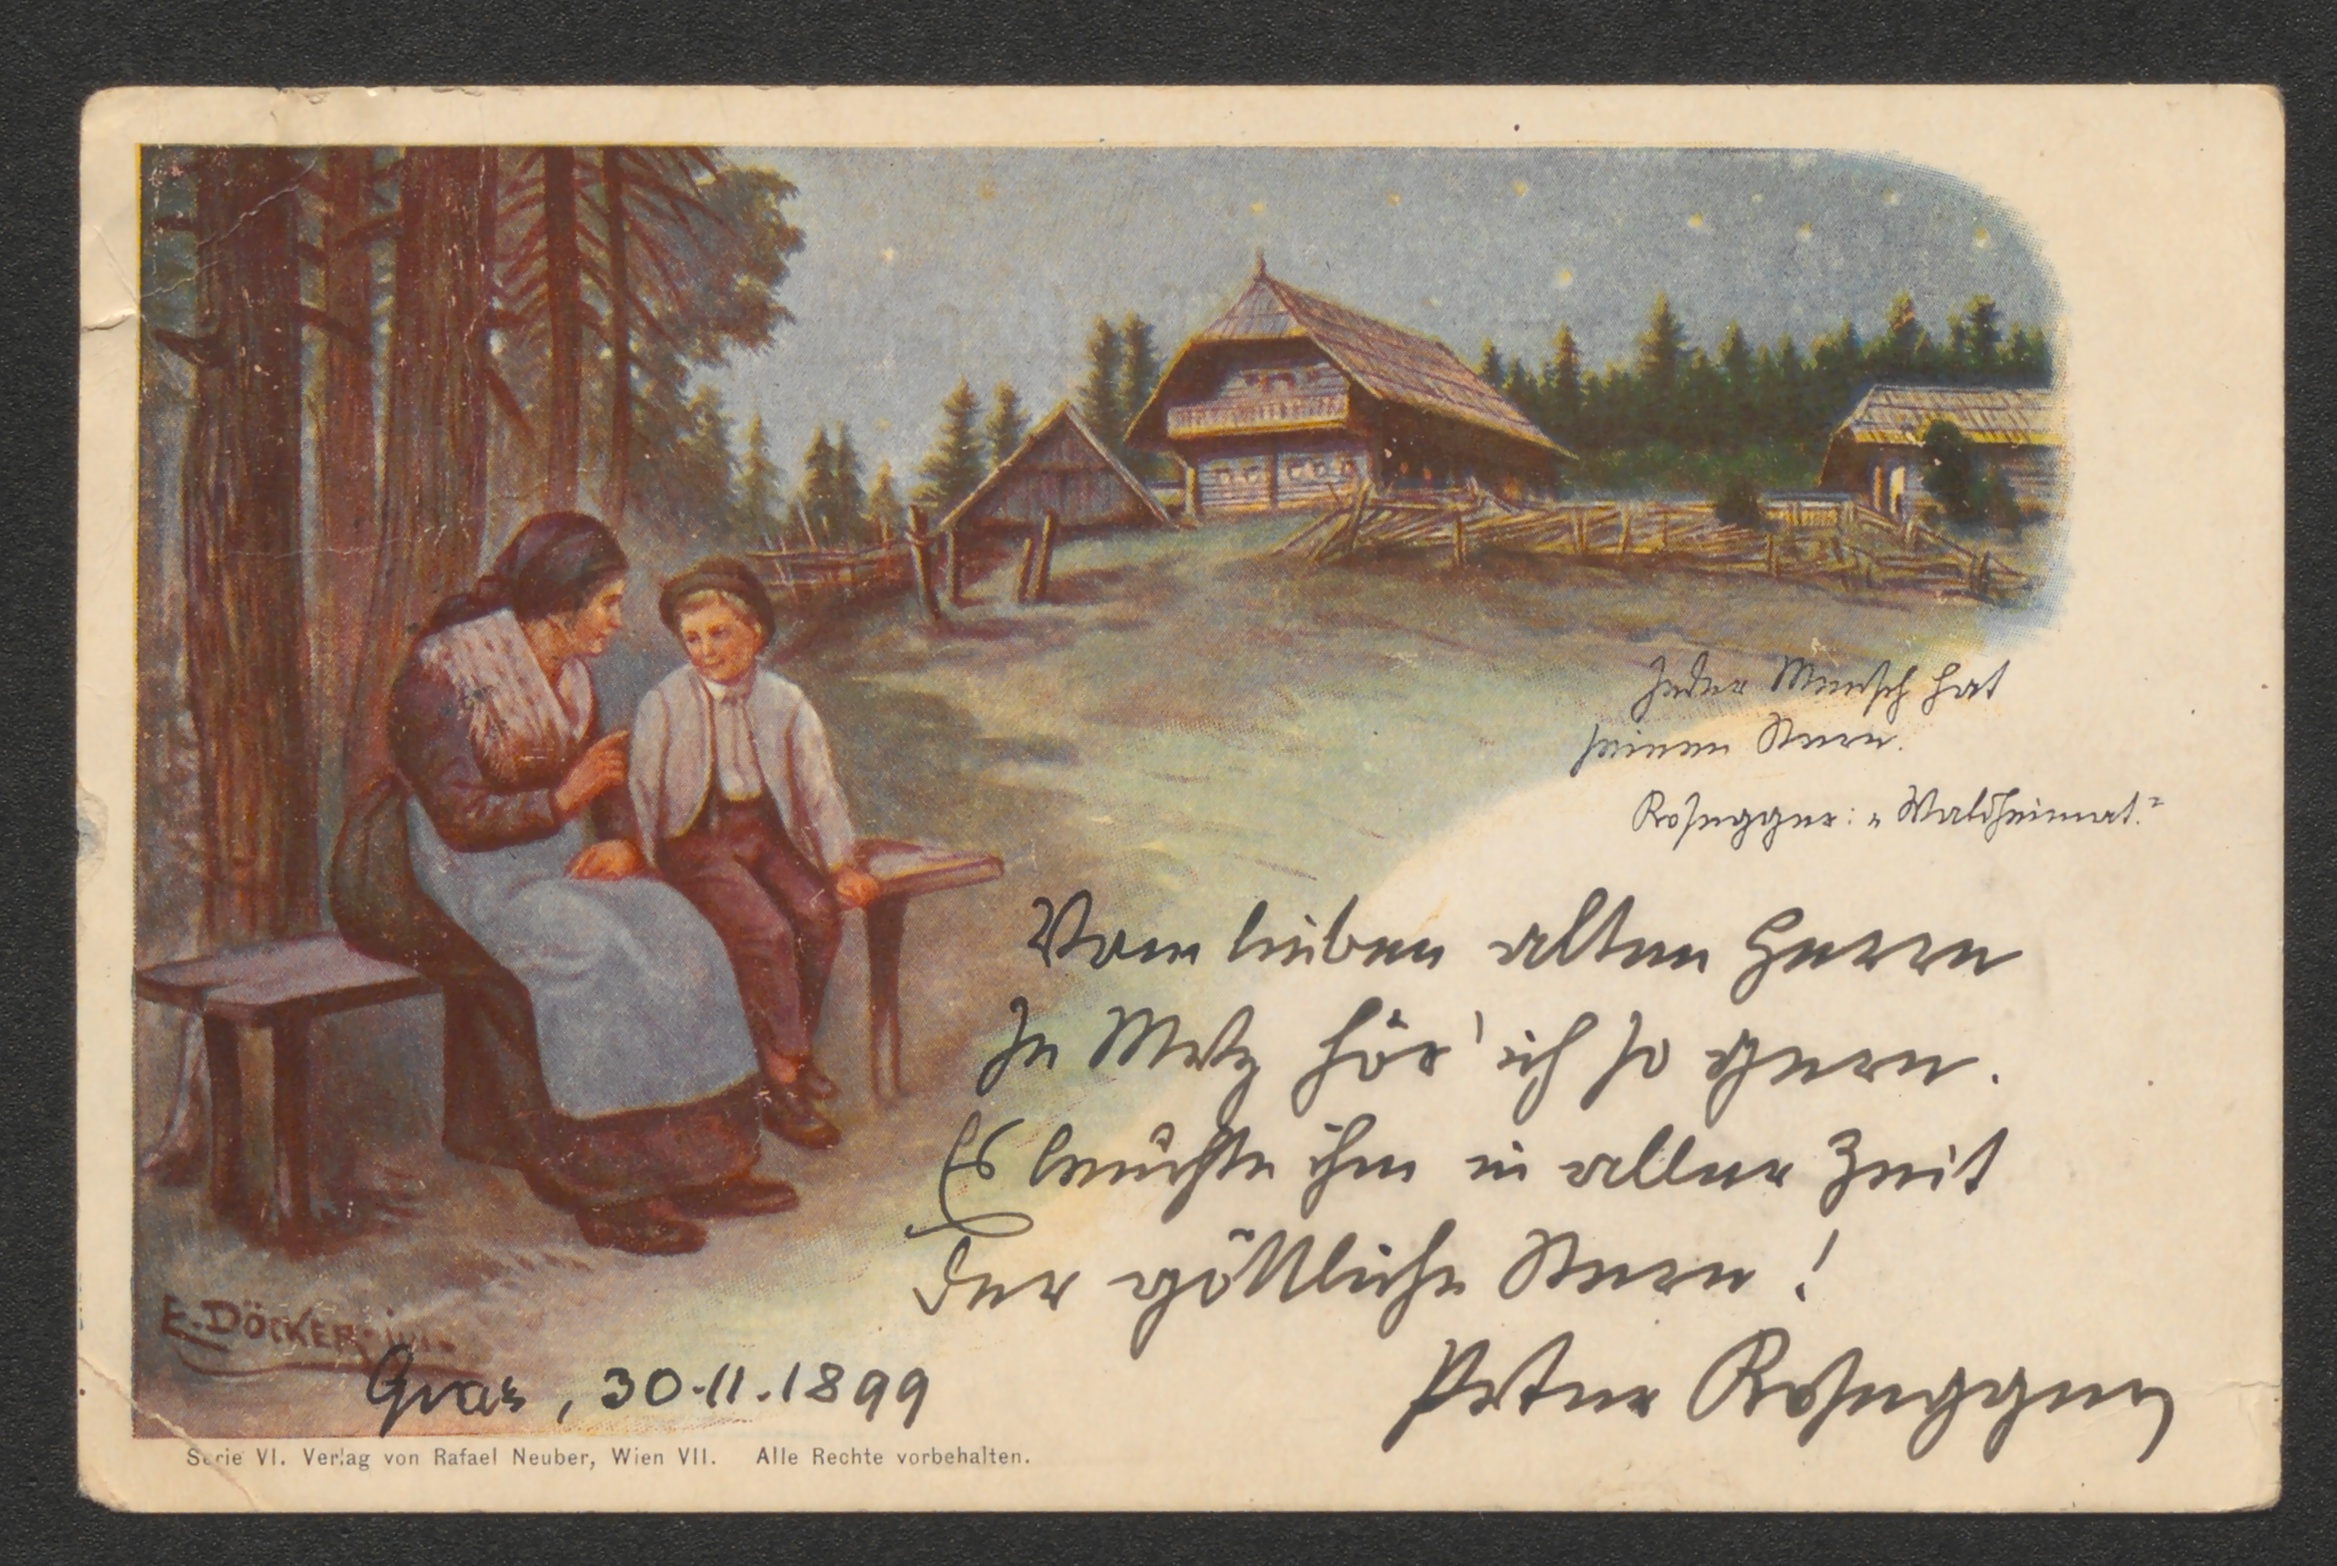 Jeder Mensch hat
seinen Stern.
Rosegger: „Waldheimat."
Vom lieben alten Herrn
In Metz hör' ich so gern.
Es leuchte ihm in aller Zeit
Der göttliche Stern!
Peter Rosegger
E. DÖCKER
Graz, 30.11.1899
Serie VI. Verlag von Rafael Neuber, Wien VII. Alle Rechte vorbehalten.